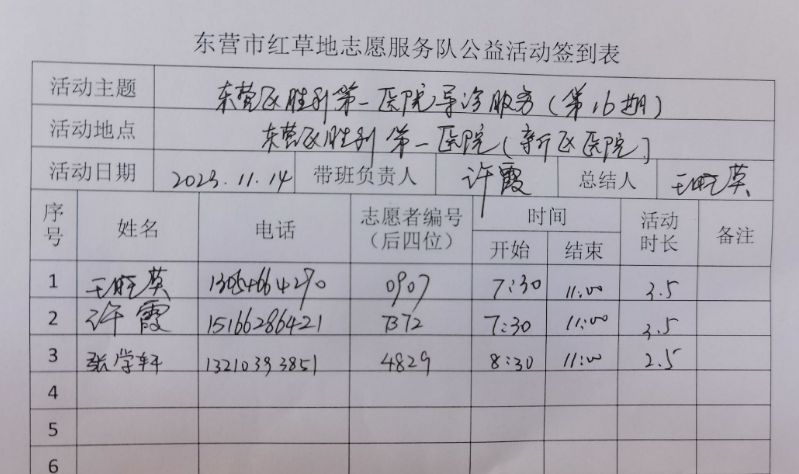 东营市红草地志愿服务队公益活动签到表
活动主题 东营区胜利第一医院导诊服务(第16期)
活动地点 东营区胜利第一医院(新区医院)
活动日期 2023.11.14 带班负责人 许霞 总结人 王晓英
序号 姓名 电话 志愿者编号(后四位) 时间 开始 结束 活动时长 备注
1 王晓英 13054664290 0907 7:30 11:00 3.5
2 许霞 15166286421 7372 7:30 11:00 3.5
3 张学轩 13210393851 4829 8:30 11:00 2.5
4
5
6